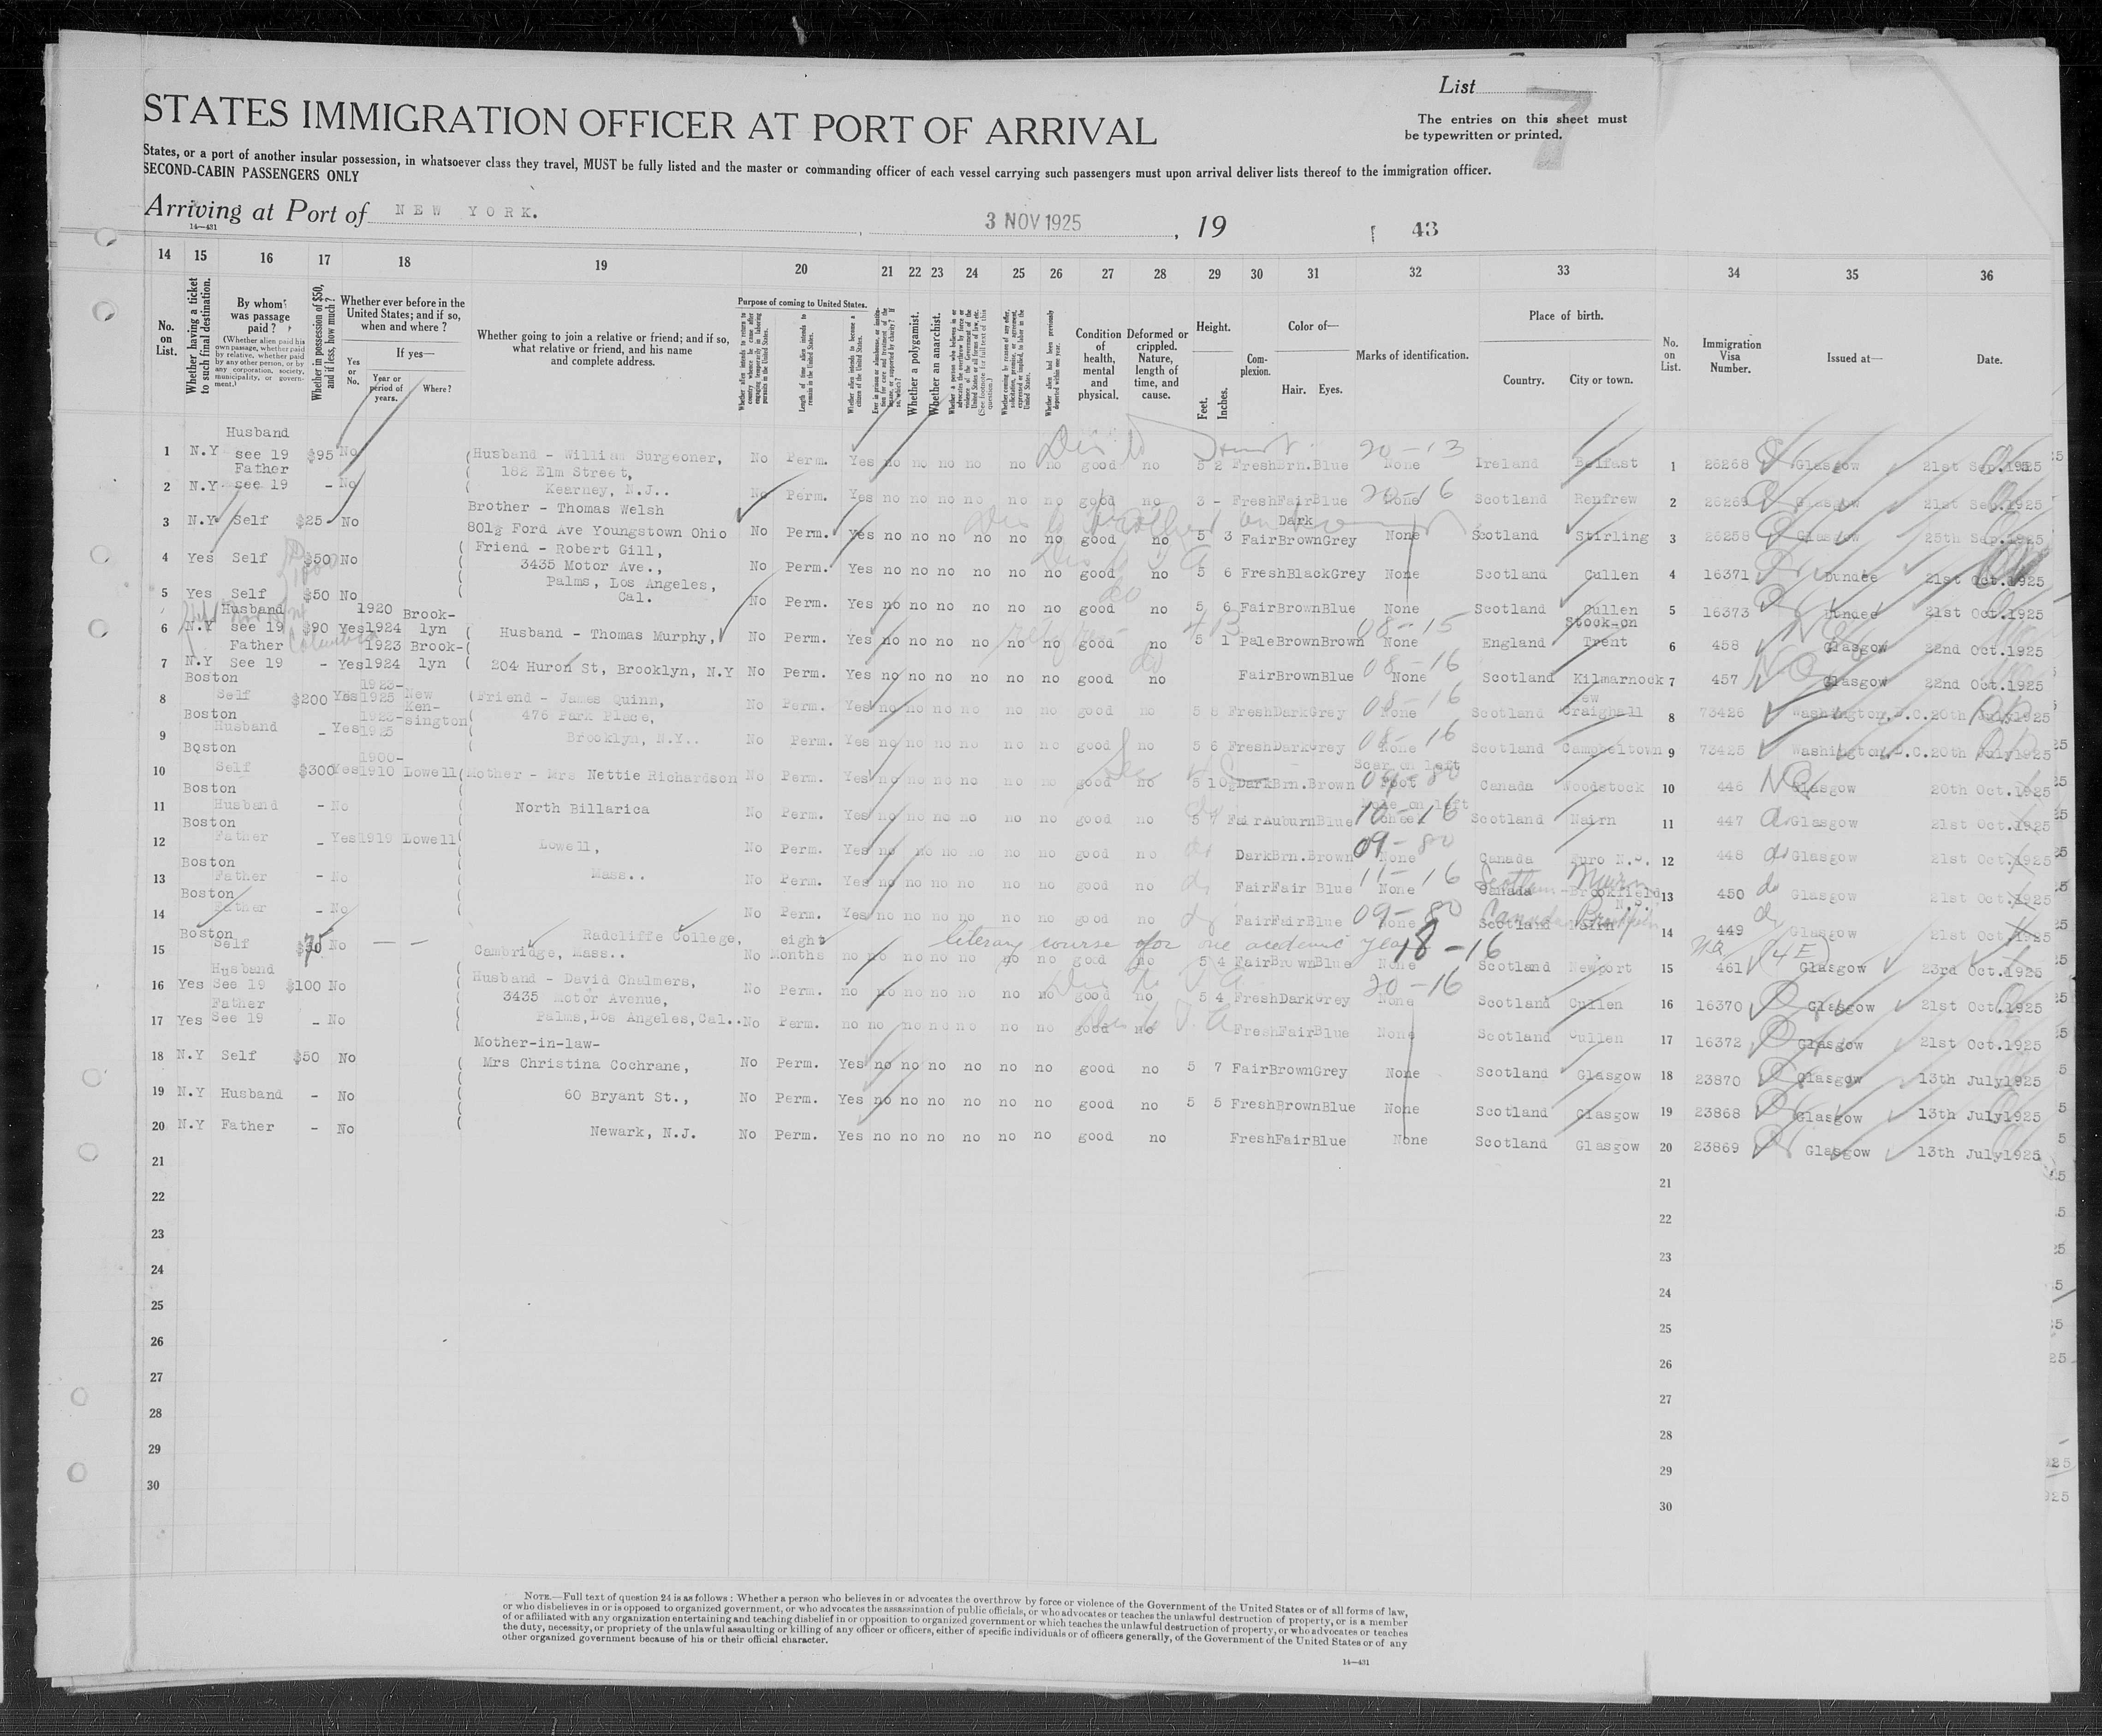 List
7
The entries on this sheet must
be typewritten or printed.
STATES IMMIGRATION OFFICER AT PORT OF ARRIVAL
States, or a port of another insular possession, in whatsoever class they travel, MUST be fully listed and the master or commanding officer of each vessel carrying such passengers must upon arrival deliver lists thereof to the immigration officer.
SECOND-CABIN PASSENGERS ONLY
Arriving at Port of NEW YORK. , 3 NOV 1925 , 19 43
14—431
14 15 16 17 18 19 20 21 22 23 24 25 26 27 28 29 30 31 32 33 34 35 36
No. on List.
Whether having a ticket to such final destination.
By whom was passage paid?
(Whether alien paid his own passage, whether paid by relative, whether paid by any other person, or by any corporation, society, municipality, or government.)
Whether in possession of $50, and if less, how much?
Whether ever before in the United States; and if so, when and where?
Yes or No.
If yes—
Year or period of years.
Where?
Whether going to join a relative or friend; and if so, what relative or friend, and his name and complete address.
Purpose of coming to United States.
Length of time alien intends to remain in the United States.
Whether alien intends to become a citizen of the United States.
Whether a polygamist.
Whether an anarchist.
Condition of health, mental and physical.
Deformed or crippled. Nature, length of time, and cause.
Height.
Feet.
Inches.
Complexion.
Color of—
Hair. Eyes.
Marks of identification.
Place of birth.
Country. City or town.
No. on List.
Immigration Visa Number.
Issued at—
Date.
1 N.Y Husband see 19 $95 No Husband - William Surgeoner, No Perm. Yes no no no no no no good no 5 2 Fresh Brn. Blue None 20-13 Ireland Belfast 1 26268 Glasgow 21st Sep.1925
182 Elm Street,
2 N.Y. Father see 19 - No Kearney, N.J.. No Perm. Yes no no no no no no good no 3 - Fresh Fair Blue None 20-16 Scotland Renfrew 2 26269 Glasgow 21st Sep.1925
Brother - Thomas Welsh
3 N.Y Self $25 No 801½ Ford Ave Youngstown Ohio No Perm. Yes no no no no no no good no 5 3 Fair Dark Brown Grey None Scotland Stirling 3 26258 Glasgow 25th Sep.1925
Friend - Robert Gill,
4 Yes Self $50 No 3435 Motor Ave., No Perm. Yes no no no no no no good no 5 6 Fresh Black Grey None Scotland Cullen 4 16371 Dundee 21st Oct.1925
Palms, Los Angeles,
5 Yes Self $50 No Cal. No Perm. Yes no no no no no no good no 5 6 Fair Brown Blue None Scotland Cullen 5 16373 Dundee 21st Oct.1925
6 N.Y Husband see 19 $90 Yes 1920 1924 Brook-lyn Husband - Thomas Murphy, No Perm. Yes no no no no no no good no 5 1 Pale Brown Brown None 08-15 England Stock-on Trent 6 458 Glasgow 22nd Oct.1925
7 N.Y Father See 19 - Yes 1923 1924 Brook-lyn 204 Huron St, Brooklyn, N.Y No Perm. Yes no no no no no no good no Fair Brown Blue None 08-16 Scotland Kilmarnock 7 457 Glasgow 22nd Oct.1925
8 Boston Self $200 Yes 1923-1925 New Ken-sington Friend - James Quinn, No Perm. Yes no no no no no no good no 5 8 Fresh Dark Grey None 08-16 Scotland New Craighall 8 73426 Washington, D.C. 20th July 1925
476 Park Place,
9 Boston Husband - Yes 1923-1925 Brooklyn, N.Y.. No Perm. Yes no no no no no no good no 5 6 Fresh Dark Grey None 08-16 Scotland Campbeltown 9 73425 Washington D.C. 20th July 1925
10 Boston Self $300 Yes 1900-1910 Lowell Mother - Mrs Nettie Richardson No Perm. Yes no no no no no no good no 5 10½ Dark Brn. Brown Scar on left Foot 09-80 Canada Woodstock 10 446 Glasgow 20th Oct.1925
11 Boston Husband - No North Billarica No Perm. Yes no no no no no no good no 5 7 Fair Auburn Blue Mole on left Cheek 10-16 Scotland Nairn 11 447 Glasgow 21st Oct.1925
12 Boston Father - Yes 1919 Lowell Lowell, No Perm. Yes no no no no no no good no Dark Brn. Brown None 09-80 Canada Turo N.S. 12 448 Glasgow 21st Oct.1925
13 Boston Father - No Mass.. No Perm. Yes no no no no no no good no Fair Fair Blue None 11-16 Canada Scotland Brookfield N.S. Nairn 13 450 Glasgow 21st Oct.1925
14 Boston Father - No No Perm. Yes no no no no no no good no Fair Fair Blue None 09-80 Scotland Canada Nairn 14 449 Glasgow 21st Oct.1925
Radcliffe College, literary course for one academic year
15 Boston Self No — — Cambridge, Mass.. No eight Months no no no no no no no good no 5 4 Fair Brown Blue None 18-16 Scotland Newport 15 461 (4E) Glasgow 23rd Oct.1925
16 Yes Husband See 19 $100 No Husband - David Chalmers, No Perm. no no no no no no no good no 5 4 Fresh Dark Grey None 20-16 Scotland Cullen 16 16370 Glasgow 21st Oct.1925
3435 Motor Avenue,
17 Yes Father See 19 - No Palms, Los Angeles, Cal.. No Perm. no no no no no no no good no Fresh Fair Blue None Scotland Cullen 17 16372 Glasgow 21st Oct.1925
Mother-in-law-
18 N.Y Self $50 No Mrs Christina Cochrane, No Perm. Yes no no no no no no good no 5 7 Fair Brown Grey None Scotland Glasgow 18 23870 Glasgow 13th July1925
19 N.Y Husband - No 60 Bryant St., No Perm. Yes no no no no no no good no 5 5 Fresh Brown Blue None Scotland Glasgow 19 23868 Glasgow 13th July1925
20 N.Y Father - No Newark, N.J. No Perm. Yes no no no no no no good no Fresh Fair Blue None Scotland Glasgow 20 23869 Glasgow 13th July1925
21 21
22 22
23 23
24 24
25 25
26 26
27 27
28 28
29 29
30 30
NOTE.—Full text of question 24 is as follows: Whether a person who believes in or advocates the overthrow by force or violence of the Government of the United States or of all forms of law,
or who disbelieves in or is opposed to organized government, or who advocates the assassination of public officials, or who advocates or teaches the unlawful destruction of property, or is a member
of or affiliated with any organization entertaining and teaching disbelief in or opposition to organized government or which teaches the unlawful destruction of property, or who advocates or teaches
the duty, necessity, or propriety of the unlawful assaulting or killing of any officer or officers, either of specific individuals or of officers generally, of the Government of the United States or of any
other organized government because of his or their official character.
14—431